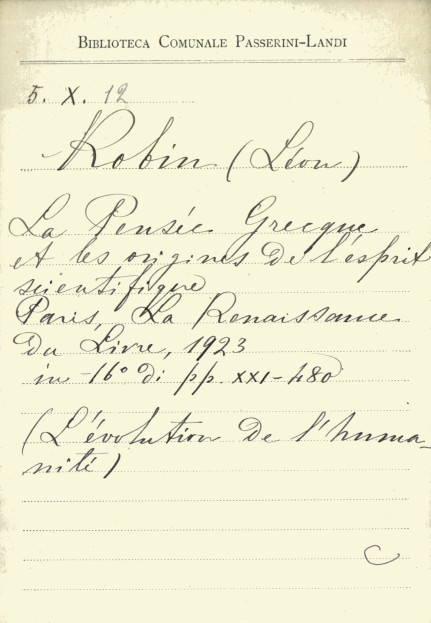 BIBLIOTECA COMUNALE PASSERINI-LANDI
5. X. 12
Robin (Léon)
La Pensée Grecque
et les origines de l'esprit
scientifique
Paris, La Renaissance
du Livre, 1923
in-16° di pp. XXI-480
(L'évolution de l'huma-
nité)
C